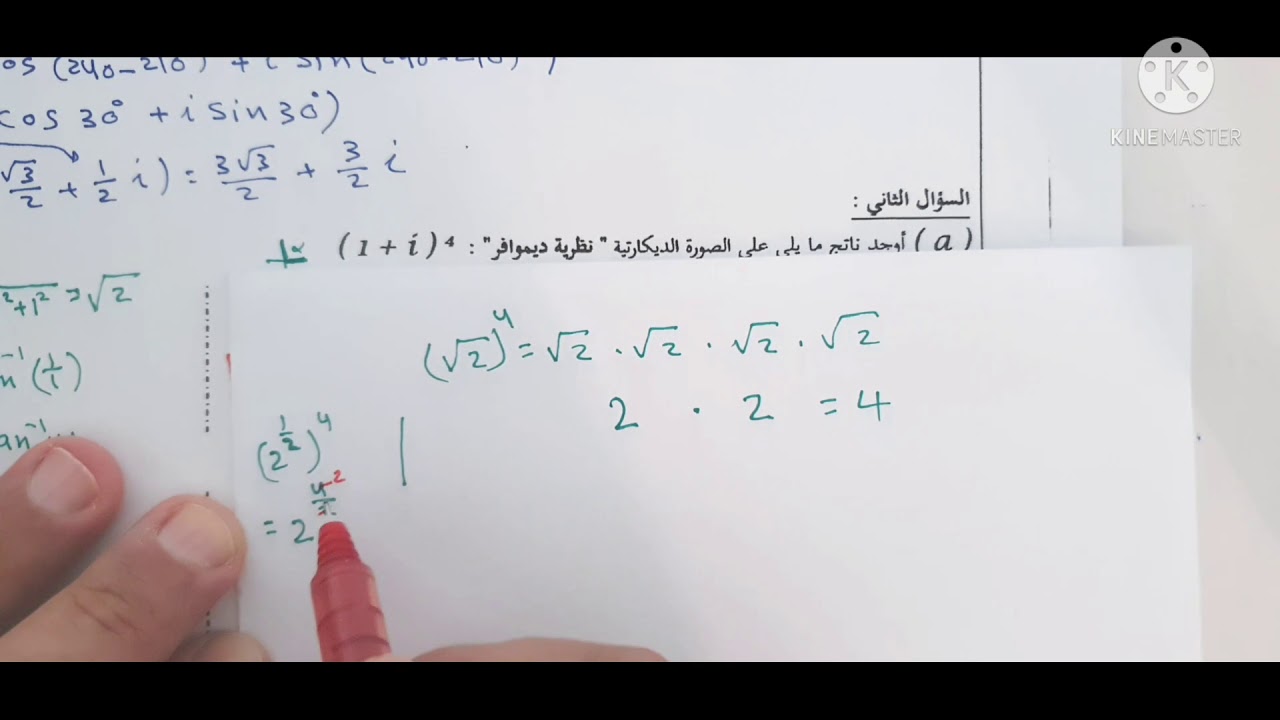 cos (240-210) + i sin(240-210) )
cos 30° + i sin 30°)
√3/2 + 1/2 i) = 3√3/2 + 3/2 i
KINEMASTER
السؤال الثاني :
(a) أوجد ناتج ما يلي على الصورة الديكارتية " نظرية ديموافر" : (1 + i)⁴
²+1² = √2
(√2)⁴ = √2 . √2 . √2 . √2
n⁻¹(1/1)
2 . 2 = 4
an⁻¹
(2^(1/2))⁴
= 2^(4/2) 2